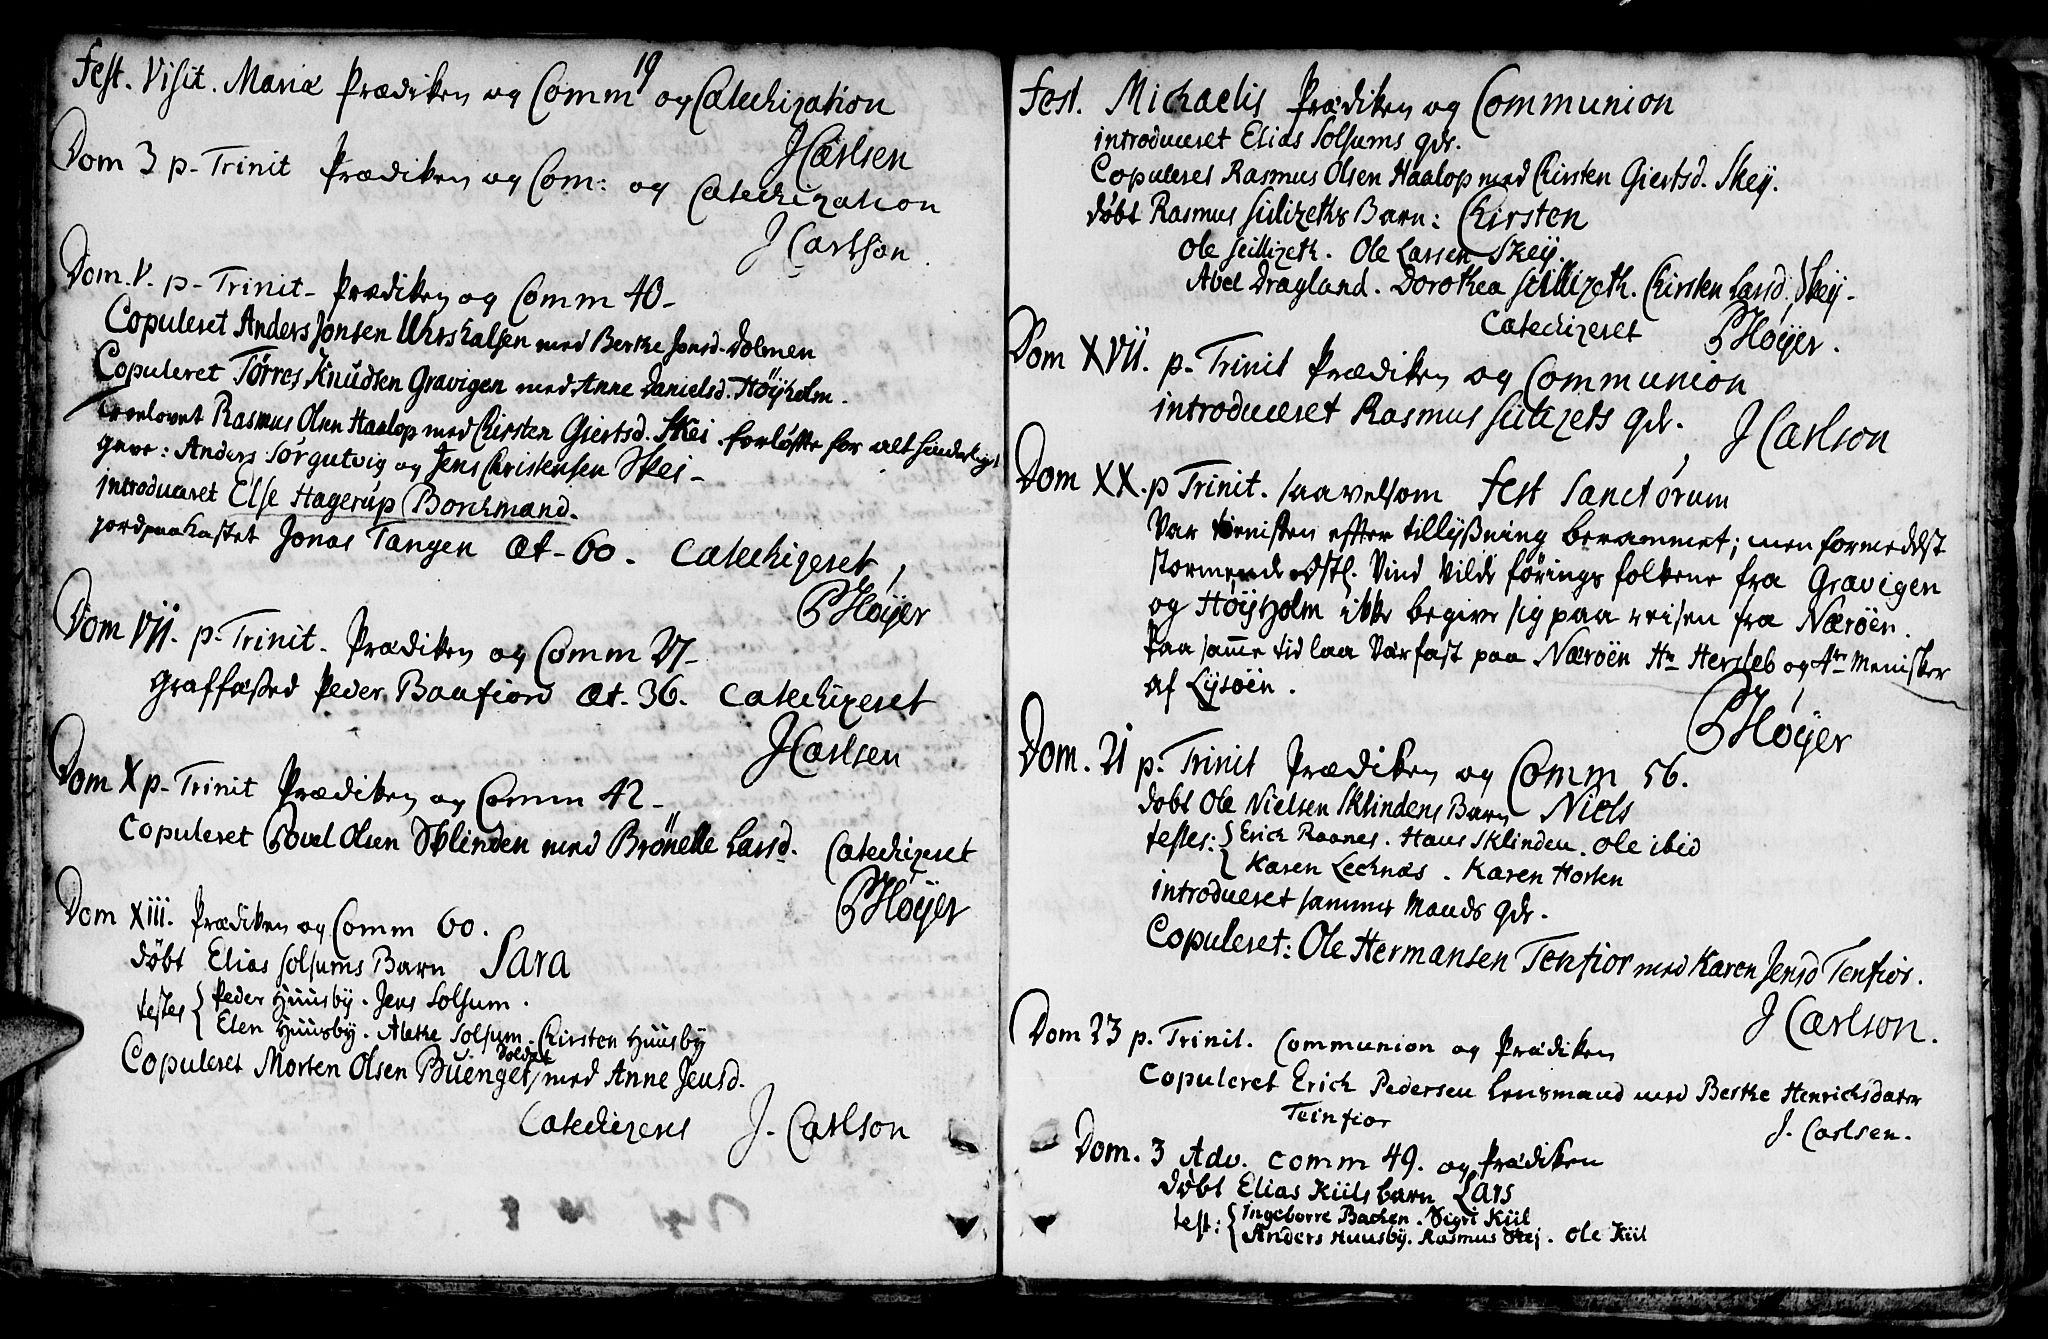 Fest. Visit. Mariæ Prædiken og Comm 19 og Catechization
JCarlsen
Dom 3 p. Trinit Prædiken og Com: og Catechization
J Carlson.
Dom. V. p. Trinit. Prædiken og Comm 40.
Copuleret Anders Jonsen med Berte Jonsd. Dolmen
Copuleret Törres Knudsen Gravigen med Anne Danielsd. Höÿholm.
Troelovet Rasmus Olsen Haalop med Chirsten Giertsd. Skei forløftte for alt hinderligt
gave: Anders Sörgutvig og Jens Christensen Skei.
introduceret Else Hagerup Borchmand.
jordpaakastet Jonas Tangen æt. 60. Catechizeret,
PHøÿer
Dom VII. p. Trinit. Prædiken og Comm 27.
Graffæsted Peder Baafiord æt. 36. Catechizeret
JCarlsen
Dom X p. Trinit Prædiken og Comm 42.
Copuleret Povel Olsen Sklinden med Brönelle Larsd. Catechizeret
PHøÿer
Dom XIII. Prædiken og Comm 60.
døbt Elias Solsums Barn Sara
testes Peder Huusby. Jens Solsum.
Elen Huusby. Aletke Solsum. Chirsten Huusby
Copuleret Morten Olsen Buenget soldat med Anne Jensd.
Catechizeret J. Carlson
Fest. Michaelis Prædiken og Communion
introduceret Elias Solsums qdr.
Copuleret Rasmus Olsen Haalop med Chirsten Giertsd. Skeÿ.
døbt Rasmus Barn: Chirsten
Ole Ole Larsen Skeÿ.
Abel Dragland. Dorothea Chirsten Larsd. Skeÿ.
Catechizeret PHøÿer.
Dom XVII. p. Trinit Prædiken og Communion
introduceret Rasmus qdr.
J Carlson
Dom XX. p Trinit. saavelsom Fest Sanctorum
Var tienisten effter tillÿßning berammet; men formedelst
stormende Østl. Vind vilde förings folkene fra Gravigen
og Höÿholm ikke begive sig paa reisen fra Nærøen.
Paa samme tid laa værfast paa Nærøen Hr Hersleb og 4re Menisker
af Lÿsøen.
PHøÿer
Dom. 21 p. Trinit Prædiken og Comm 56.
døbt Ole Nielsen Sklindens Barn Niels
testes: Erich Raanes. Hans Sklinden. Ole ibid
Karen Lecknæs. Karen Horten
introduceret samme Mands qdr.
Copuleret: Ole Hermansen Tenfior med Karen Jensd Tenfior.
J Carlson.
Dom 23 p. Trinit. Communion og Prædiken
Copuleret Erich Pedersen Lensmand med Berthe Henrichsdater
Teinfior
J. Carlsen.
Dom. 3 Adv. comm 49. og Prædiken
døbt Elias Kiils barn Lars
test: Ingeborre Bachen. Sigri Kiil
Anders Huusby. Rasmus Skej. Ole Kiil